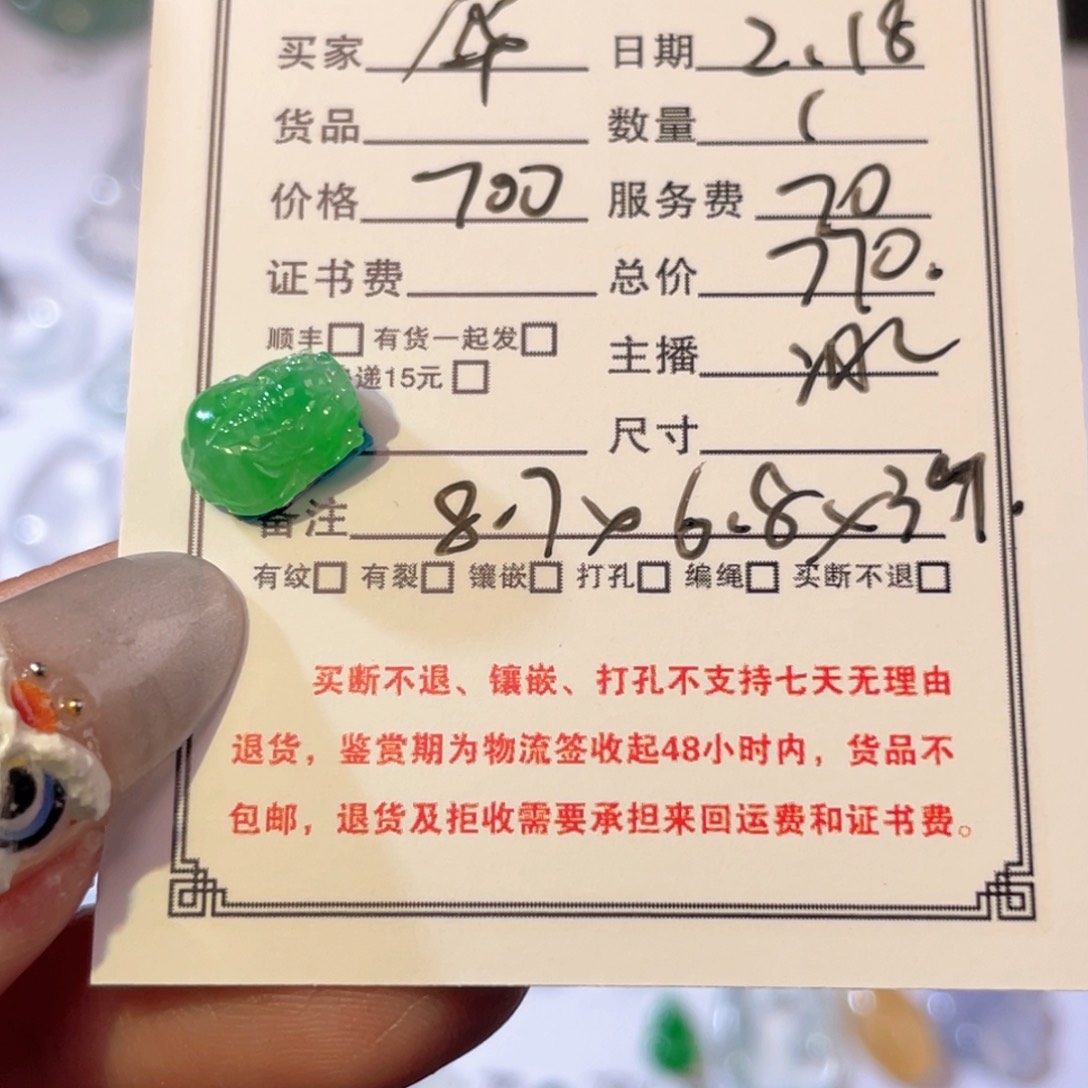 买家 日期 2.18
货品 数量 1
价格 700 服务费 70
证书费 总价 770.
顺丰□ 有货一起发□ 主播
递15元 □
尺寸
备注 8.7×6.8×3
有纹□ 有裂□ 镶嵌□ 打孔□ 编绳□ 买断不退□
买断不退、镶嵌、打孔不支持七天无理由
退货，鉴赏期为物流签收起48小时内，货品不
包邮，退货及拒收需要承担来回运费和证书费。